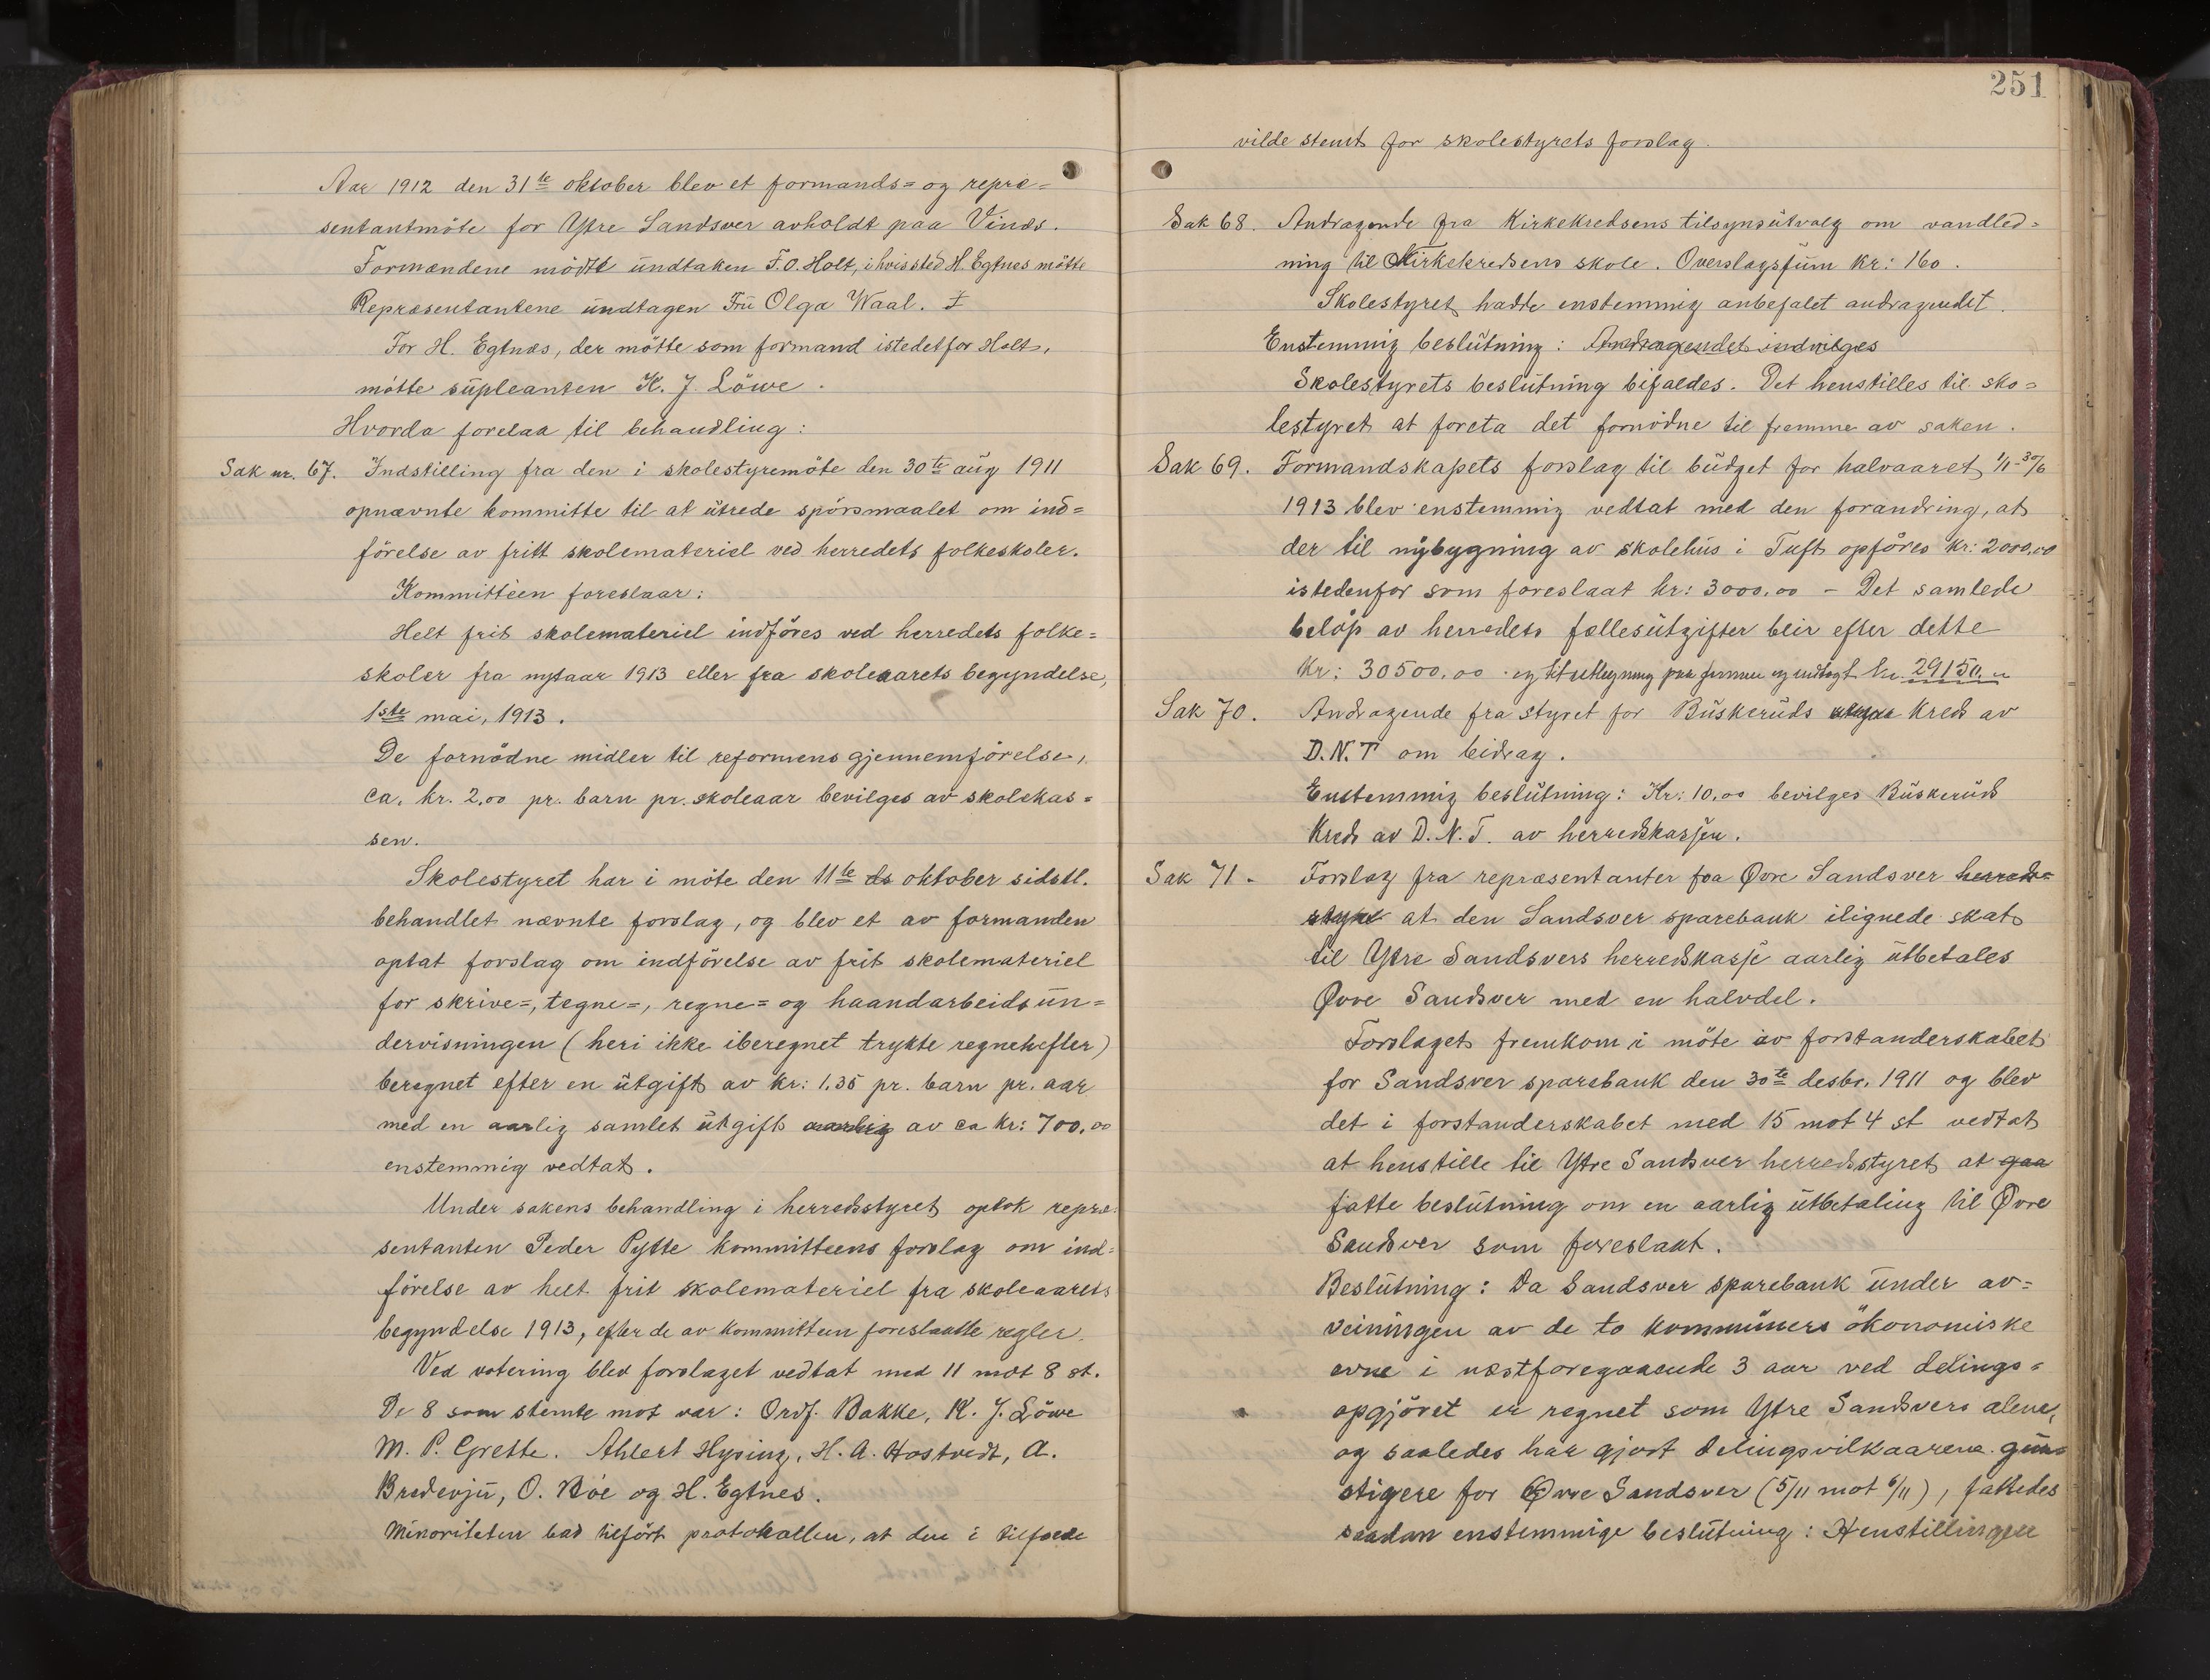 Aar 1912 den 31te oktober blev et formands= og repræ=
sentantmöte for Ytre Sandsver avholdt paa Vinæs.
Formændene mödte undtaken F.O. Holt, i hvis sted H. Egtnæs mötte
Repræsentantene undtagen Fru Olga Waal.
For H. Egtnæs, der mötte som formand istedetfor Holt,
mötte supleanten K. J. Löwe.
Hvorda forelaa til behandling:
Sak nr. 67. Indstilling fra den i skolestyremöte den 30te aug 1911
opnævnte kommitte til at utrede spörsmaalet om ind=
förelse av fritt skolemateriel ved herredets folkeskoler.
Kommittéen foreslaar:
Helt frit skolemateriel indföres ved herredets folke=
skoler fra nytaar 1913 eller fra skoleaarets begyndelse,
1ste mai, 1913.
De fornödne midler til reformens gjennemförelse,
ca. kr. 2,00 pr. barn pr. skoleaar bevilges av skolekas=
sen.
Skolestyret har i möte den 11te ds oktober sidstl.
behandlet nævnte forslag, og blev et av formanden
optat forslag om indförelse av frit skolemateriel
for skrive=, tegne=, regne= og haandarbeidsun=
dervisningen (heri ikke iberegnet trykte regnehefter)
beregnet efter en utgift av kr: 1.35 pr. barn pr. aar
med en aarlig samlet utgift aarlig av ca kr: 700,00
enstemmig vedtat.
Under sakens behandling i herredsstyret optok repræ=
sentanten Peder Pytte kommitteens forslag om ind=
förelse av helt frit skolemateriel fra skoleaarets
begyndelse 1913, efter de av kommitteen foreslaatte regler.
Ved votering blev forslaget vedtat med 11 mot 8 st.
De 8 som stemte mot var: Ordf. Bakke, K. J. Löwe
M. P. Grette. Ahlert Hysing, H. A. Hostvedt, A.
Bredevju, O. Böe og H. Egtnes.
Minoriteten bad tilfört protokollen, at den i tilfælde
251
vilde stemt for skolestyrets forslag.
Sak 68. Andragende fra Kirkekredsens tilsynsutvalg om vandled=
ning til Kirkekredsens skole. Overslagssum kr: 160.
Skolestyret hadde enstemmig anbefalet andragendet.
Enstemmig beslutning: Andragendet indvilges
Skolestyrets beslutning bifaldes. Det henstilles til sko=
lestyret at foreta det fornödne til fremme av saken.
Sak 69. Formandskapets forslag til budget for halvaaret 1/1-30/6
1913 blev enstemmig vedtat med den forandring, at
der til nybygning av skolehus i Tuft opföres kr: 2000,00
istedenfor som foreslaat kr: 3000,00 - Det samlede
belöp av herredets fællesutgifter blir efter dette
Kr: 30500,00 og til utligning paa formue og indtægt kr. 29150.
Sak 70. Andragende fra styret for Buskeruds Kreds av
D.N.T om bidrag.
Enstemmig beslutning: Kr: 10,00 bevilges Buskeruds
Kreds av D. N. T. av herredskassen.
Sak 71. Forslag fra repræsentanter fra Øvre Sandsver herreds=
styre at den Sandsver sparebank ilignede skat
til Ytre Sandsvers herredskasse aarlig utbetales
Øvre Sandsver med en halvdel.
Forslaget fremkom i möte av forstanderskabet
for Sandsver sparebank den 30te desbr. 1911 og blev
det i forstanderskabet med 15 mot 4 st vedtat
at henstille til Ytre Sandsver herredsstyret at gaa
fatte beslutning om en aarlig utbetaling til Øvre
Sandsver som foreslaat.
Beslutning: Da Sandsver sparebank under av=
veiningen av de to kommuners ökonomiske
evne i næstforegaaende 3 aar ved delings=
opgjöret er regnet som Ytre Sandsvers alene,
og saaledes har gjort delingsvilkaarene gun=
stigere for Øvre Sandsver (5/11 mot 6/11), fattedes
saadan enstemmige beslutning: Henstillingen